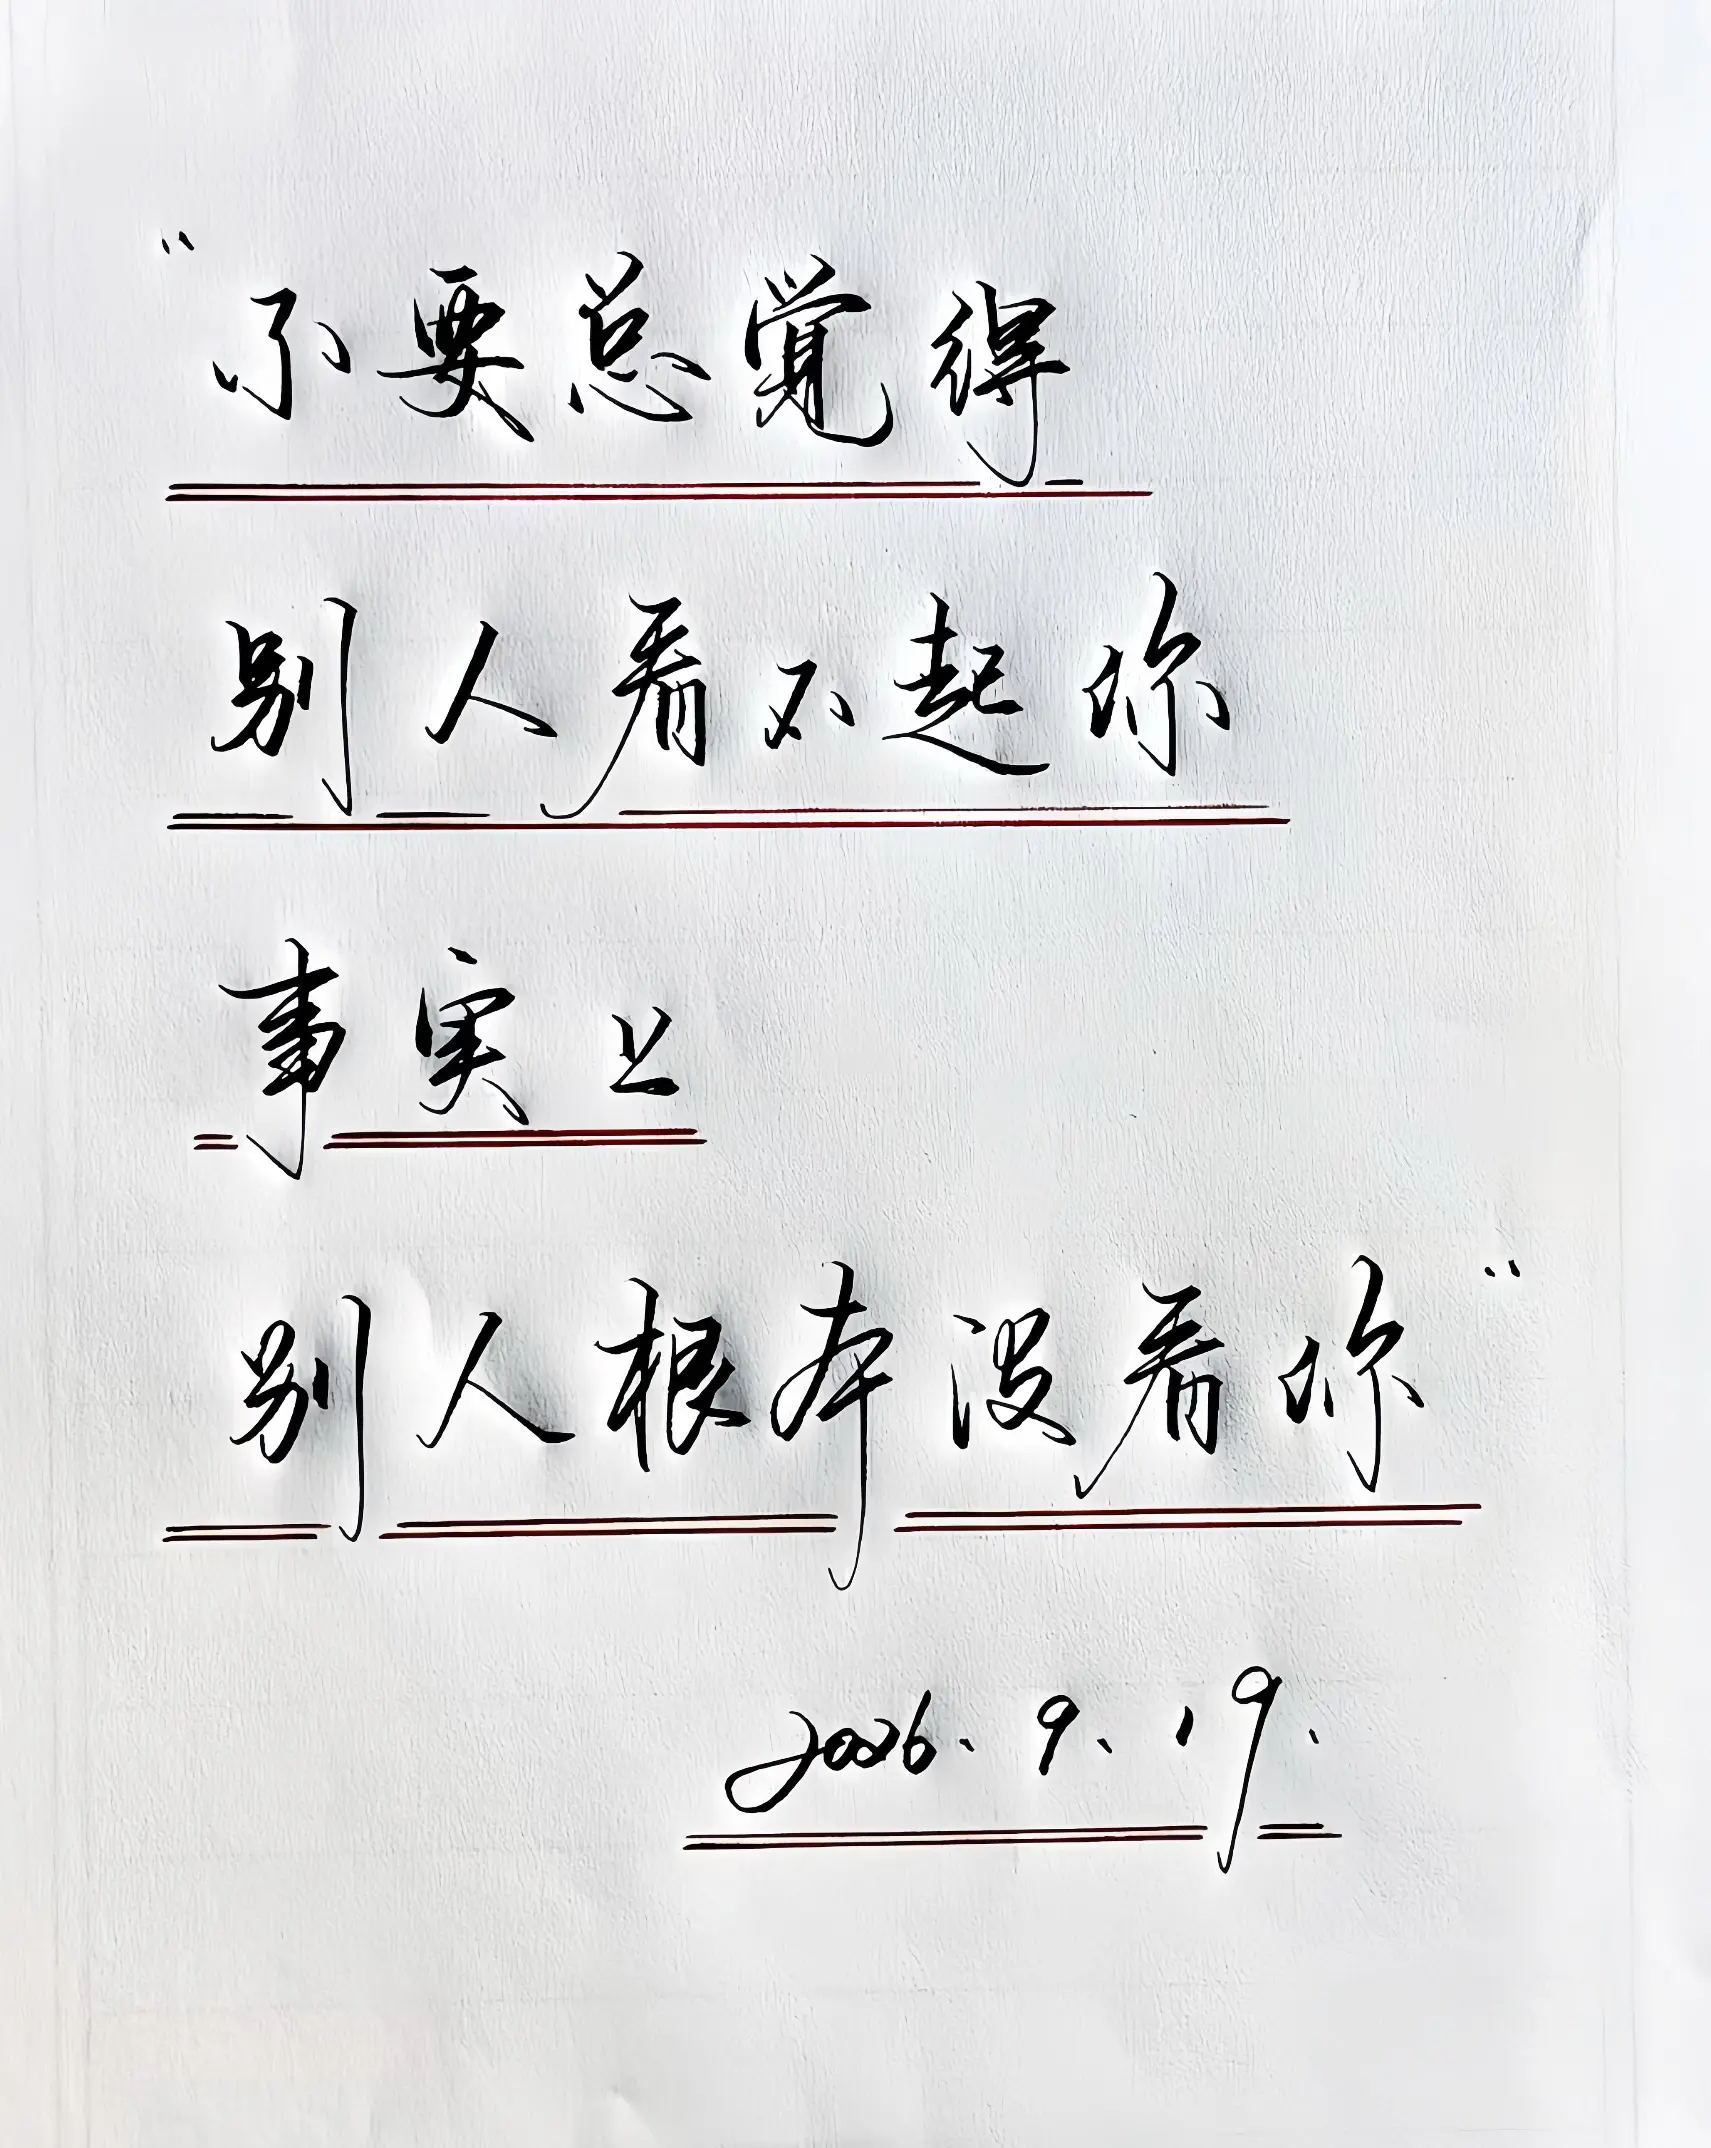 “不要总觉得
别人看不起你
事实上
别人根本没看你”
2026.9.19.